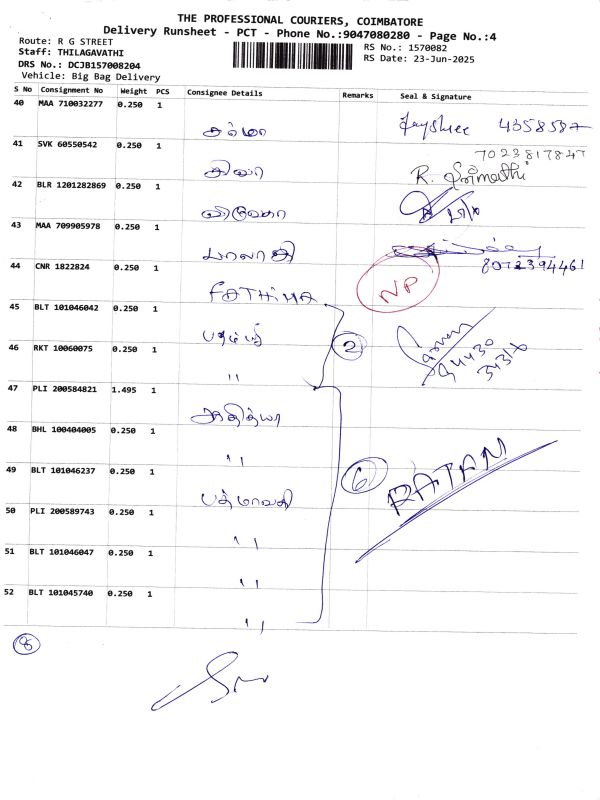 THE PROFESSIONAL COURIERS, COIMBATORE
Delivery Runsheet - PCT - Phone No.:9047080280 - Page No.:4
Route: R G STREET
RS No.: 1570082
Staff: THILAGAVATHI
RS Date: 23-Jun-2025
DRS No.: DCJB157008204
Vehicle: Big Bag Delivery
S No Consignment No Weight PCS Consignee Details Remarks Seal & Signature
40 MAA 710032277 0.250 1
Jayshree 4358587
41 SVK 60550542 0.250 1
7023817847
R.
42 BLR 1201282869 0.250 1
43 MAA 709905978 0.250 1
பாலாஜி
8072394461
44 CNR 1822824 0.250 1
FATHIMA
NP
45 BLT 101046042 0.250 1
2
46 RKT 10060075 0.250 1
"
47 PLI 200584821 1.495 1
ஆதித்யா
48 BHL 100404005 0.250 1
"
49 BLT 101046237 0.250 1
பத்மாவதி
6
RATAN
50 PLI 200589743 0.250 1
"
51 BLT 101046047 0.250 1
"
52 BLT 101045740 0.250 1
"
8